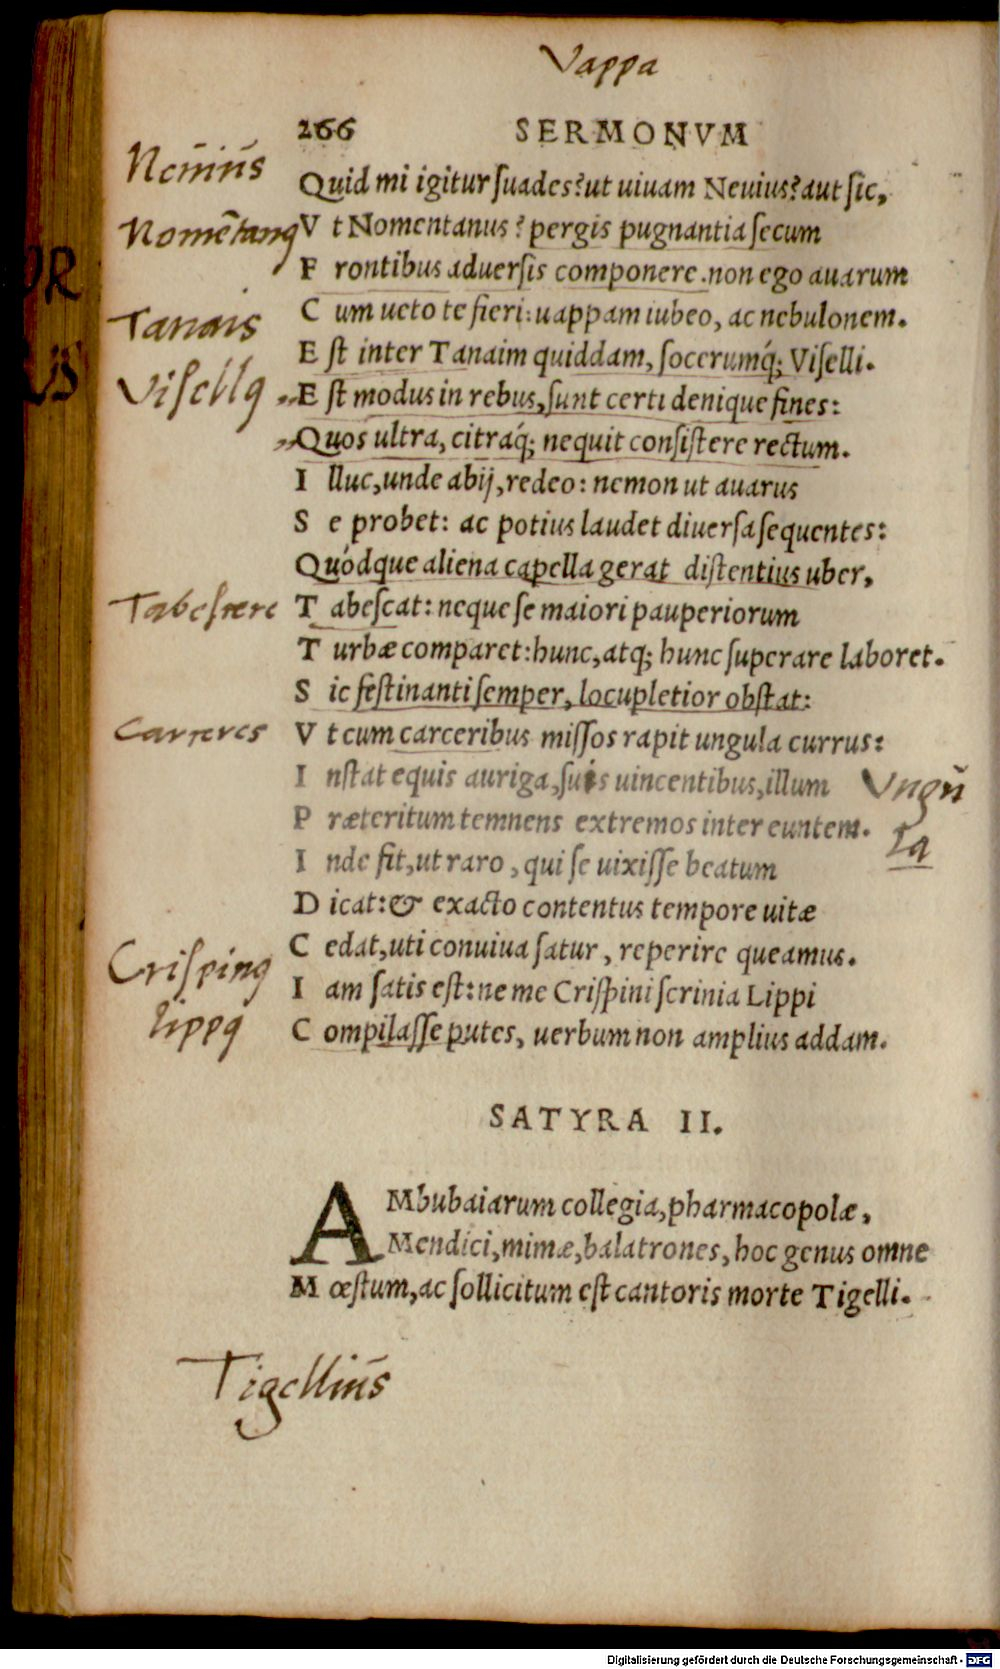 Vappa
266 SERMONVM
Neuiūs
Quid mi igitur ſuades? ut uiuam Neuius? aut ſic,
Nomētanꝯ
V t Nomentanus? pergis pugnantia ſecum
F rontibus aduerſis componere. non ego auarum
C um ueto te fieri: uappam iubeo, ac nebulonem.
Tanais
E ſt inter Tanaim quiddam, ſocerumq́; Viſelli.
Viſellꝯ
„E ſt modus in rebus, ſunt certi denique fines:
„Quos ultra, citraq́; nequit conſiſtere rectum.
I lluc, unde abij, redeo: nemon ut auarus
S e probet: ac potius laudet diuerſa ſequentes:
Quódque aliena capella gerat diſtentius uber,
Tabeſcere
T abeſcat: neque ſe maiori pauperiorum
T urbæ comparet: hunc, atq; hunc ſuperare laboret.
S ic feſtinanti ſemper, locupletior obſtat:
Carceres
V t cum carceribus miſſos rapit ungula currus:
I nſtat equis auriga, ſuis uincentibus, illum
Vngu
la
P ræteritum temnens extremos inter euntem.
I nde fit, ut raro, qui ſe uixiſſe beatum
D icat: & exacto contentus tempore uitæ
C edat, uti conuiua ſatur, reperire queamus.
Criſpinꝯ
lippꝯ
I am ſatis eſt: ne me Criſpini ſcrinia Lippi
C ompilaſſe putes, uerbum non amplius addam.
SATYRA II.
AMbubaiarum collegia, pharmacopolæ,
Mendici, mimæ, balatrones, hoc genus omne
M œſtum, ac ſollicitum eſt cantoris morte Tigelli.
Tigelliūs
Digitalisierung gefördert durch die Deutsche Forschungsgemeinschaft - DFG